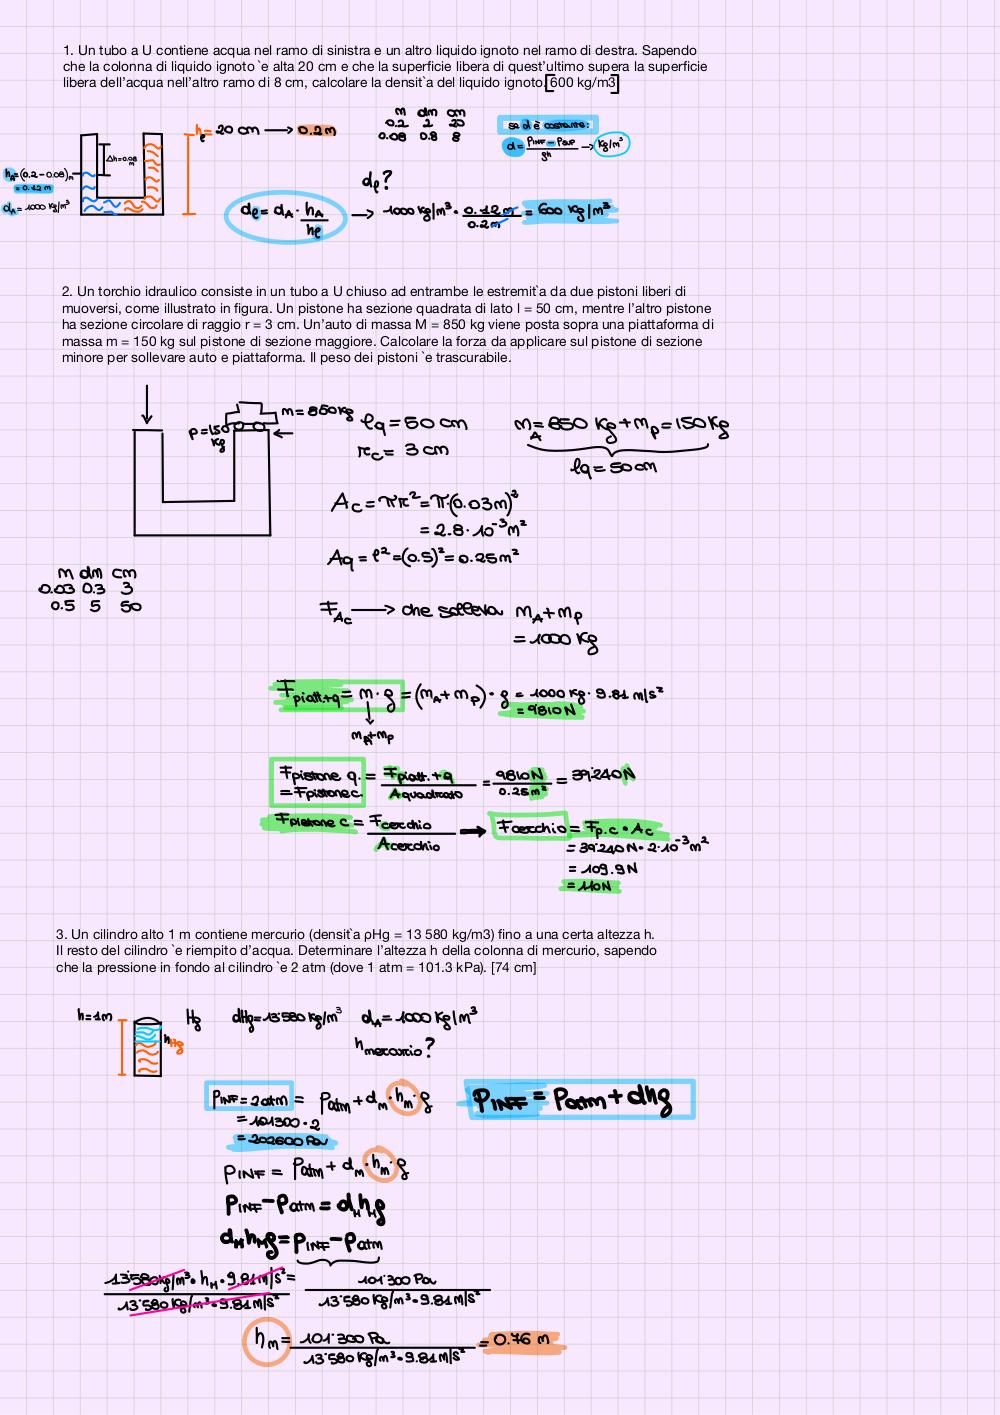 1. Un tubo a U contiene acqua nel ramo di sinistra e un altro liquido ignoto nel ramo di destra. Sapendo
che la colonna di liquido ignoto `e alta 20 cm e che la superficie libera di quest'ultimo supera la superficie
libera dell'acqua nell'altro ramo di 8 cm, calcolare la densit`a del liquido ignoto.[600 kg/m3]
hₗ = 20 cm → 0.2 m
m dm cm
0.2 2 20
0.08 0.8 8
se d è costante:
d = PINF - PSUP / gh → kg/m³
Δh=0.08 m
hA = (0.2 - 0.08) m
= 0.12 m
dA = 1000 kg/m³
dℓ?
dℓ = dA · hA / hℓ → 1000 kg/m³ · 0.12 m / 0.2 m = 600 kg/m³
2. Un torchio idraulico consiste in un tubo a U chiuso ad entrambe le estremit`a da due pistoni liberi di
muoversi, come illustrato in figura. Un pistone ha sezione quadrata di lato l = 50 cm, mentre l'altro pistone
ha sezione circolare di raggio r = 3 cm. Un'auto di massa M = 850 kg viene posta sopra una piattaforma di
massa m = 150 kg sul pistone di sezione maggiore. Calcolare la forza da applicare sul pistone di sezione
minore per sollevare auto e piattaforma. Il peso dei pistoni `e trascurabile.
m = 850 kg
p = 150 kg
ℓq = 50 cm
rc = 3 cm
mA = 850 kg + mp = 150 kg
ℓq = 50 cm
Ac = πr² = π·(0.03m)²
= 2.8·10⁻³ m²
Aq = ℓ² = (0.5)² = 0.25 m²
m dm cm
0.03 0.3 3
0.5 5 50
FAc → che solleva mA + mp
= 1000 kg
Fpiatt.+q = m · g = (mA + mp) · g = 1000 kg · 9.81 m/s²
= 9810 N
mA + mp
Fpistone q. = Fpiatt.+q / Aquadrato = 9810 N / 0.25 m² = 39'240 N
= Fpistone c.
Fpistone c = Fcerchio / Acerchio → Fcerchio = Fp.c · Ac
= 39'240 N · 2·10⁻³ m²
= 109.9 N
= 110 N
3. Un cilindro alto 1 m contiene mercurio (densit`a ρHg = 13 580 kg/m3) fino a una certa altezza h.
Il resto del cilindro `e riempito d'acqua. Determinare l'altezza h della colonna di mercurio, sapendo
che la pressione in fondo al cilindro `e 2 atm (dove 1 atm = 101.3 kPa). [74 cm]
h = 1m
hHg
Hg dHg = 13'580 kg/m³ dA = 1000 kg/m³
hmercurio?
PINF = 2 atm = Patm + dm · hm · g
= 101300 · 2
= 202600 Pa
PINF = Patm + dhg
PINF = Patm + dM · hm · g
PINF - Patm = dM hM g
dM hM g = PINF - Patm
13'580 kg/m³ · hM · 9.81 m/s² / 13'580 kg/m³ · 9.81 m/s² = 101'300 Pa / 13'580 kg/m³ · 9.81 m/s²
hm = 101'300 Pa / 13'580 kg/m³ · 9.81 m/s² = 0.76 m